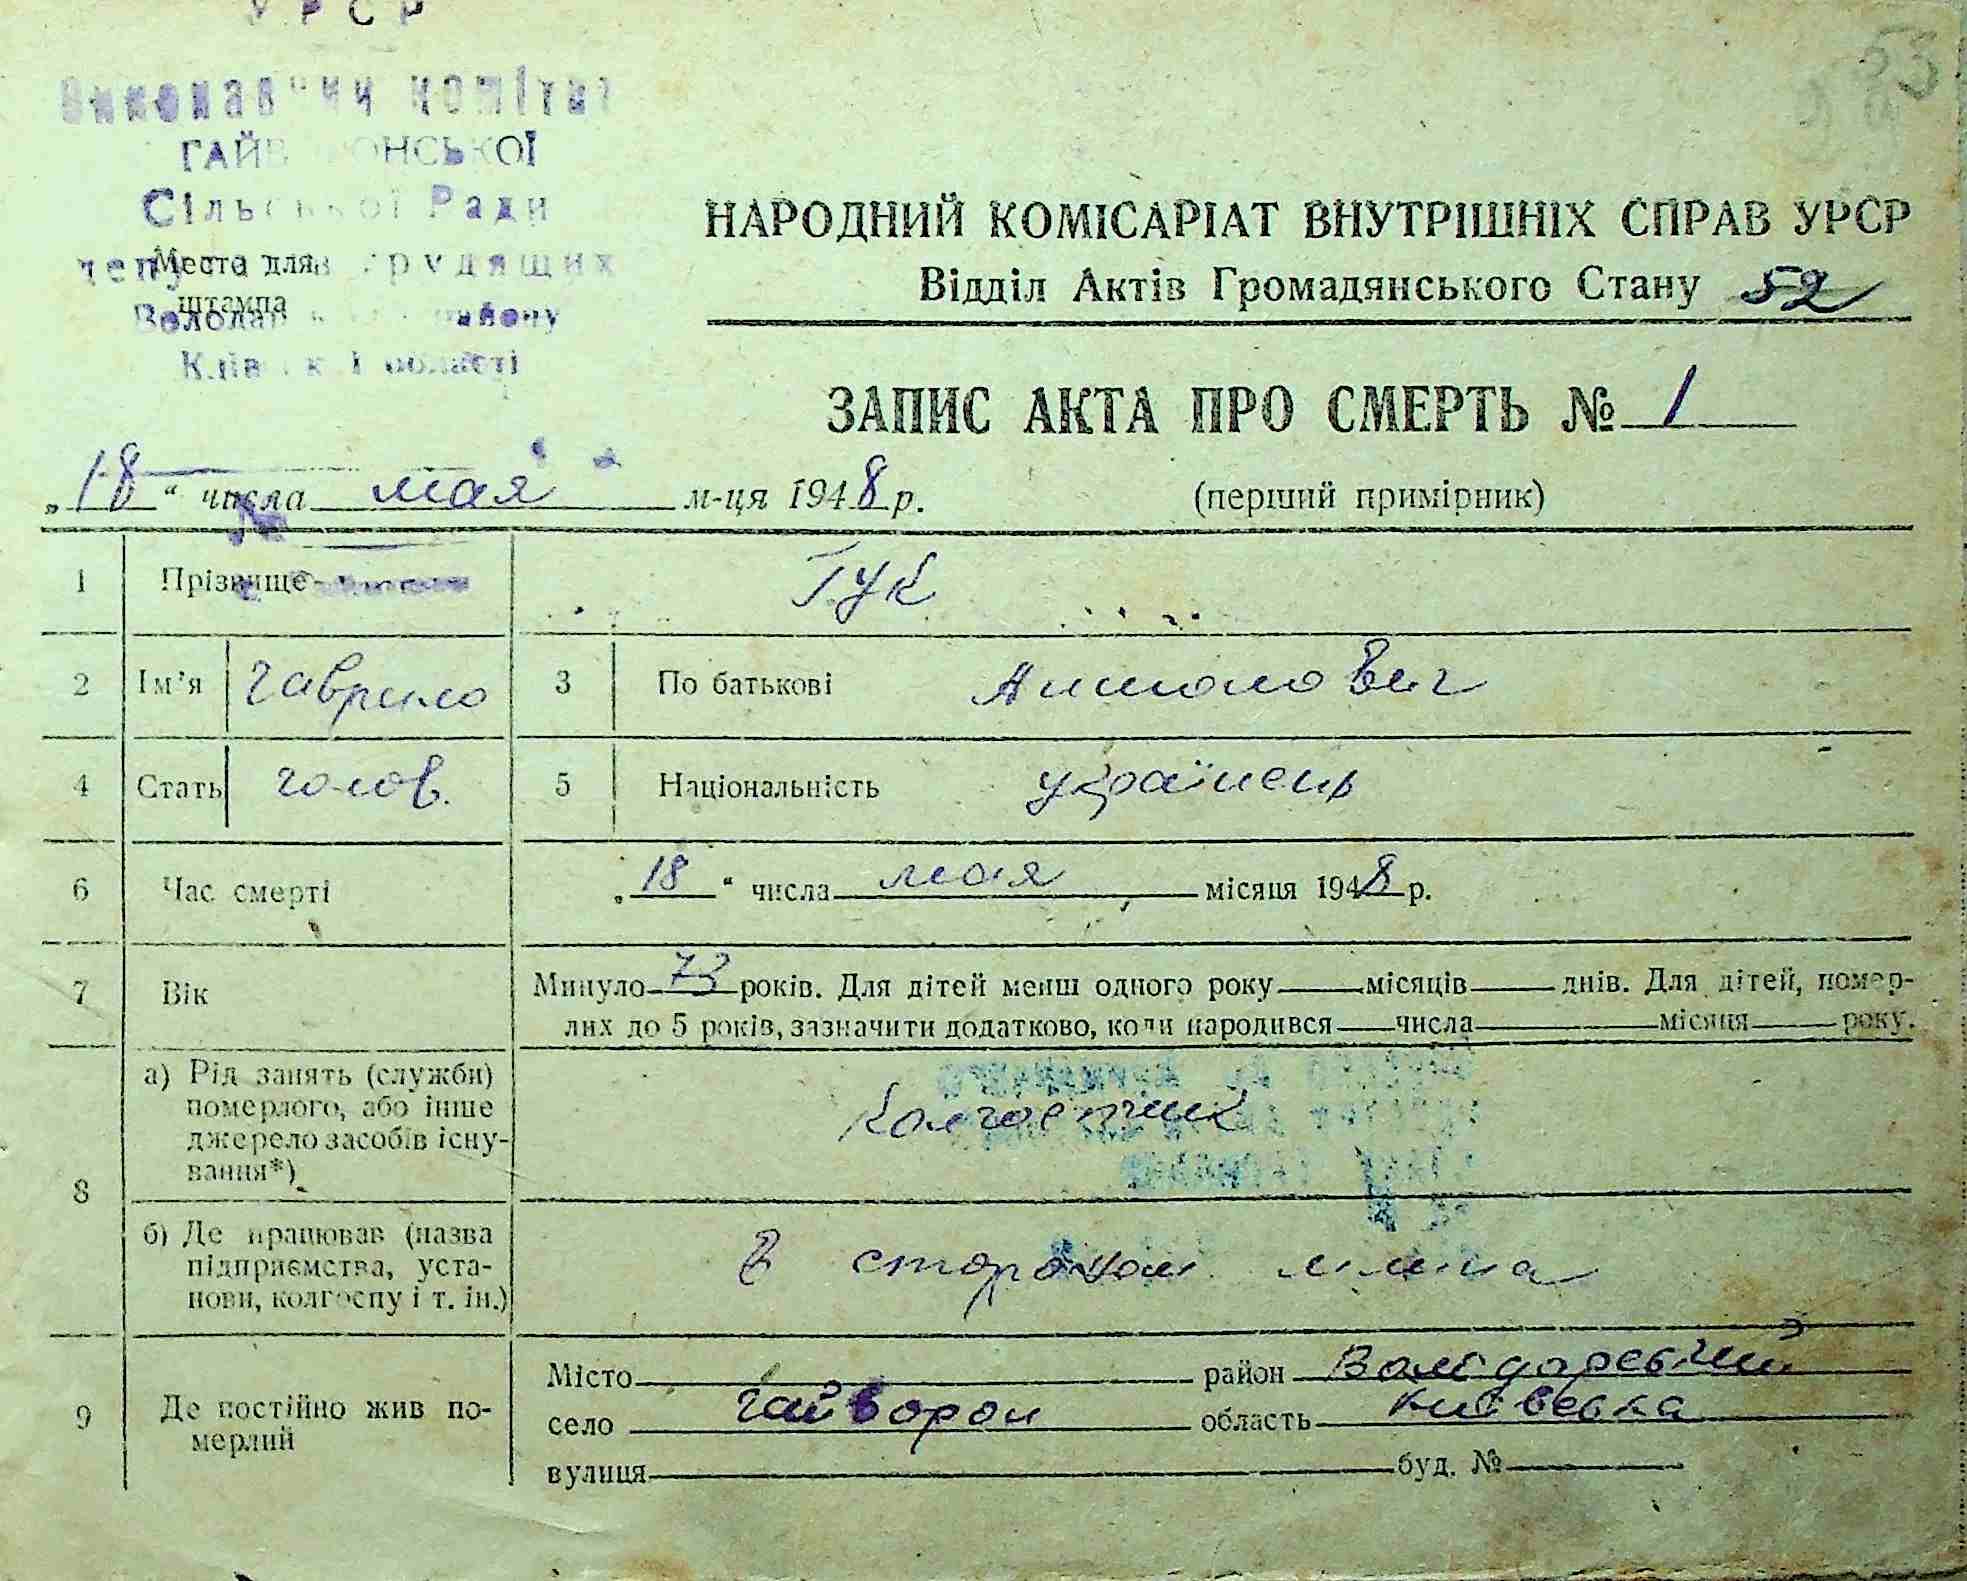 УРСР
Виконавчий комітет
ГАЙВОРОНСЬКОЇ
Сільської Ради
депутатів трудящих
Место для
штампа
району
Київської області
53
НАРОДНИЙ КОМІСАРІАТ ВНУТРІШНІХ СПРАВ УРСР
Відділ Актів Громадянського Стану 52
ЗАПИС АКТА ПРО СМЕРТЬ № 1
„18“ числа мая м-ця 1948 р. (перший примірник)
1 Прізвище Гук
2 Ім’я Гаврило 3 По батькові
4 Стать голов. 5 Національність українець
6 Час смерті „18“ числа мая місяця 1948 р.
7 Вік Минуло 73 років. Для дітей менш одного року місяців днів. Для дітей, помер-
лих до 5 років, зазначити додатково, коли народився числа місяця року.
8 а) Рід занять (служби)
померлого, або інше
джерело засобів існу-
вання*)
Колгоспник
б) Де працював (назва
підприємства, уста-
нови, колгоспу і т. ін.)
9 Де постійно жив по-
мерлий
Місто район
село Гайворон область Київська
вулиця буд. №